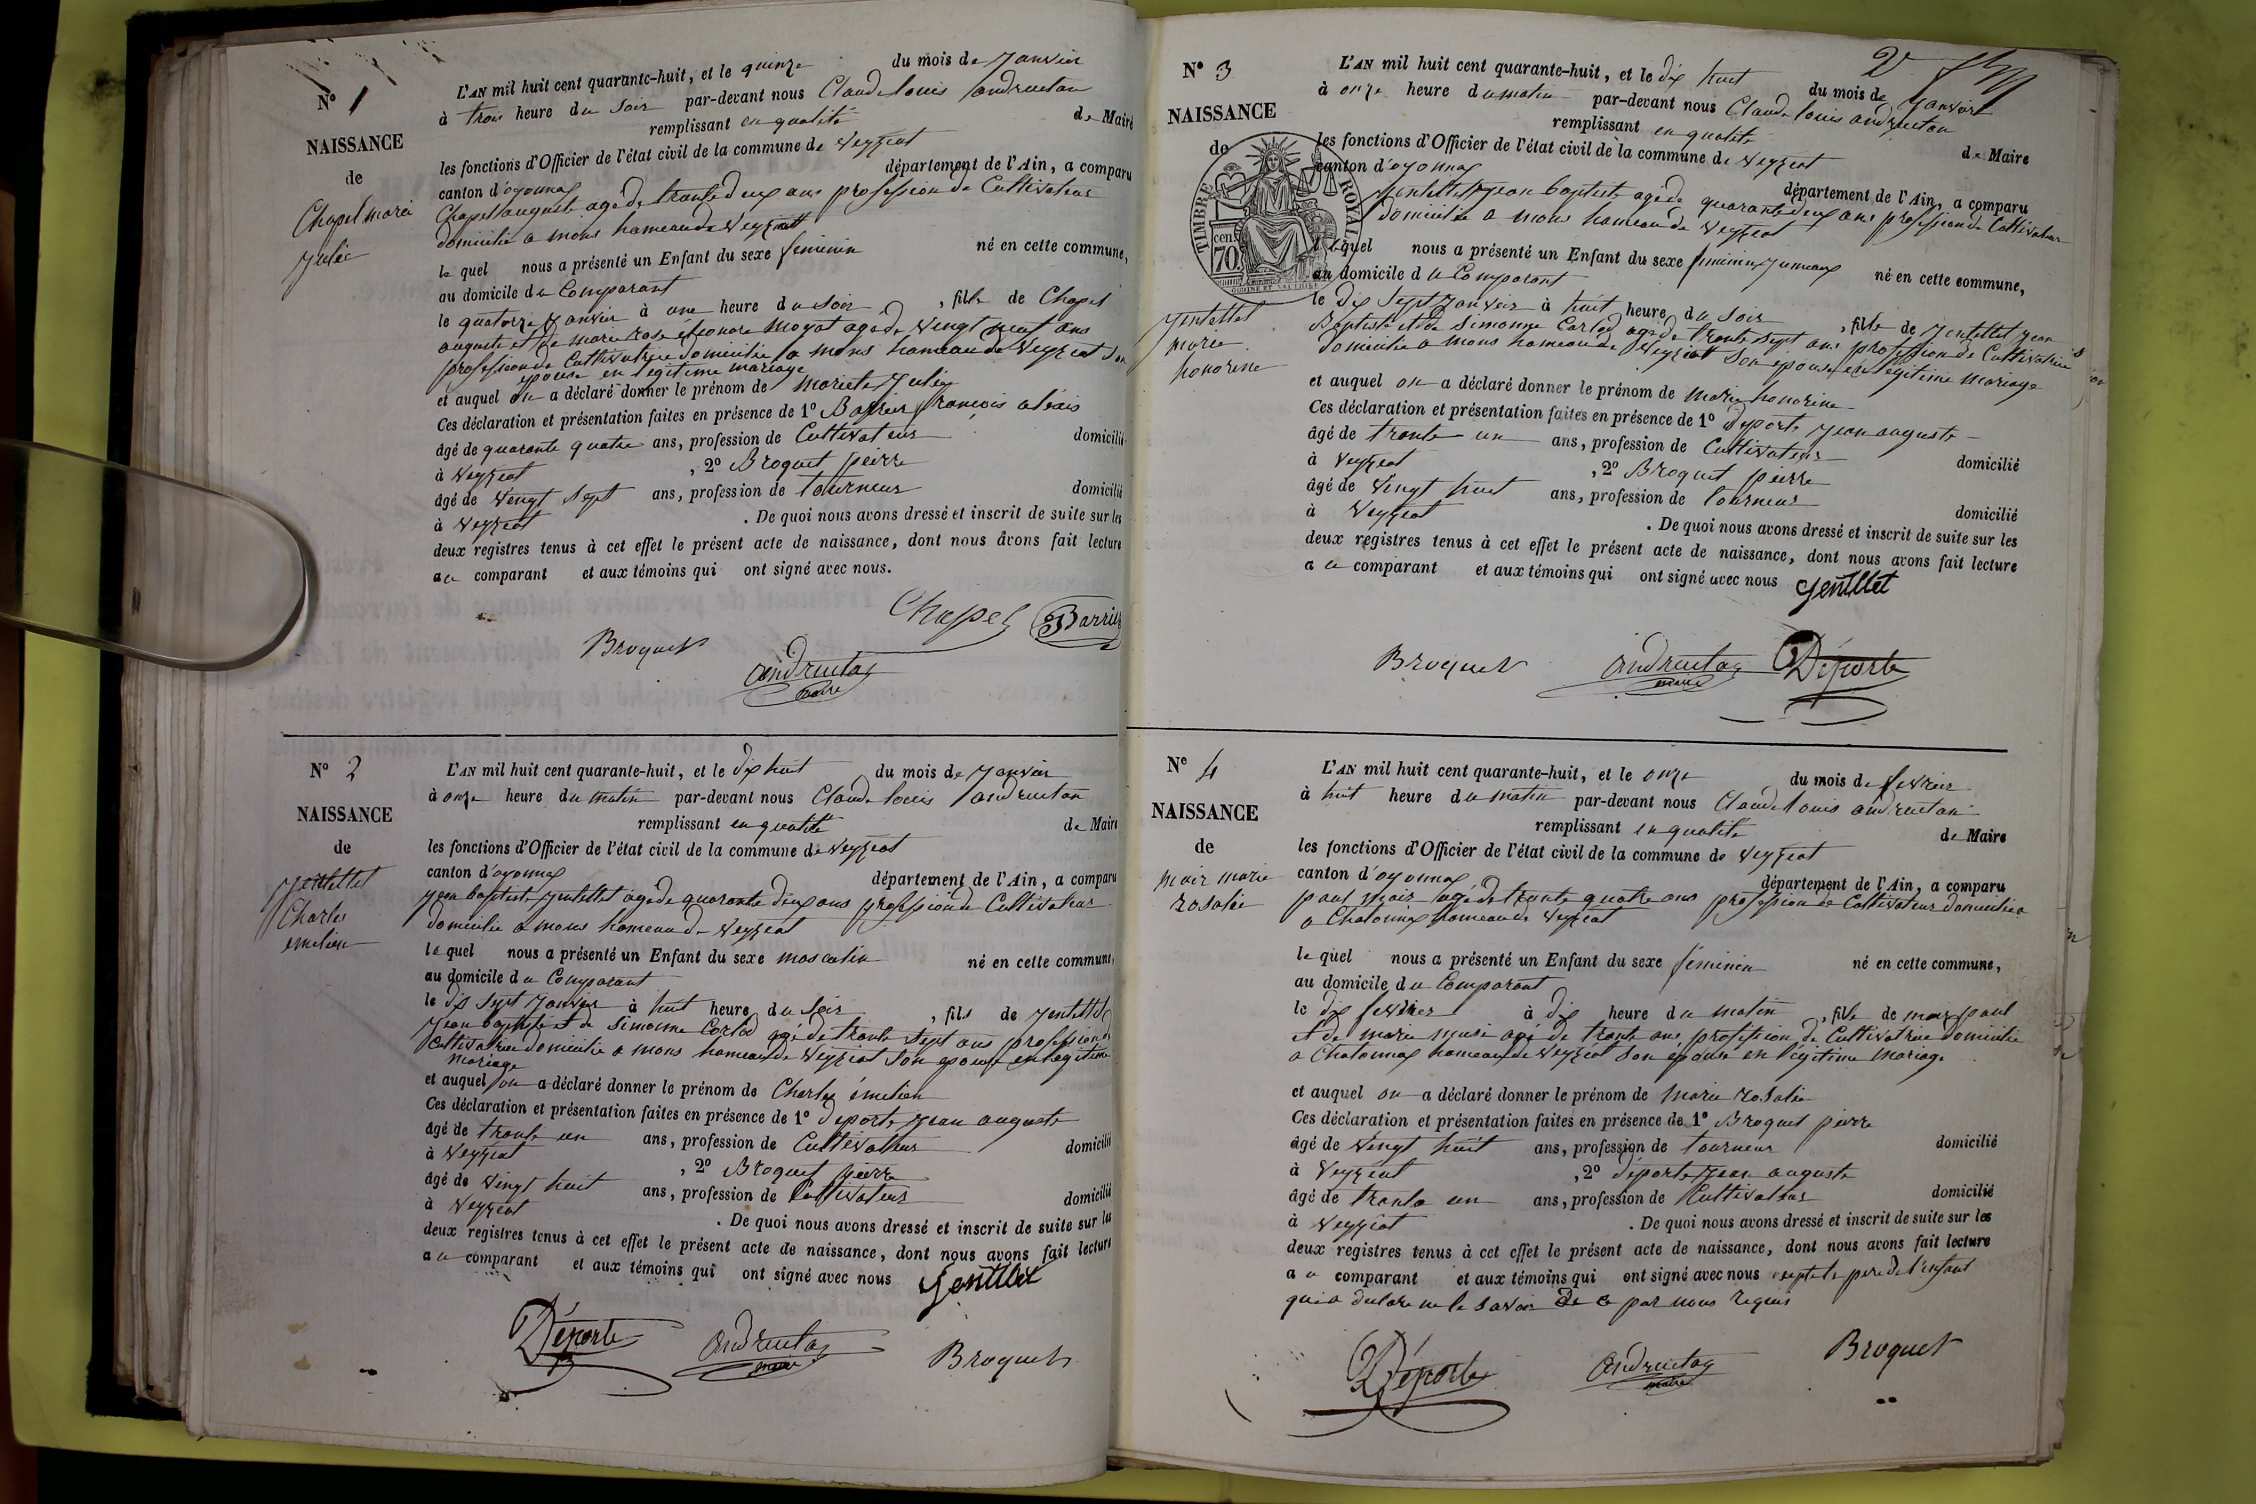 N° 1
NAISSANCE
de
Chapel marie
Julie
L'AN mil huit cent quarante-huit, et le quinze du mois de Janvier
à trois heure du soir par-devant nous Claude louis andruetan
remplissant en qualité de Maire
les fonctions d'Officier de l'état civil de la commune de Veyziat
canton d'oyonnax département de l'Ain, a comparu
Chapel auguste agé de trente deux ans profession de Cultivateur
domicilié a mons hameau de Veyziat
le quel nous a présenté un Enfant du sexe feminin né en cette commune,
au domicile du Comparant
le quatorze Janvier à une heure du soir, fille de Chapel
auguste et de marie rose éléonore moyat agé de vingt neuf ans
profession de Cultivatrice domiciliée a mons hameau de Veyziat son
epouse en legitime mariage
et auquel on a déclaré donner le prénom de mariete Julie
Ces déclaration et présentation faites en présence de 1° Barrier francois alexis
âgé de quarante quatre ans, profession de Cultivateur domicilié
à Veyziat, 2° Broquet peirre
âgé de Vingt sept ans, profession de tourneur domicilié
à Veyziat. De quoi nous avons dressé et inscrit de suite sur les
deux registres tenus à cet effet le présent acte de naissance, dont nous avons fait lecture
au comparant et aux témoins qui ont signé avec nous.
Chapel Barrier
Broquet andruetan
maire
N° 2
NAISSANCE
de
Jentellet
Charles
emilien
L'AN mil huit cent quarante-huit, et le dix huit du mois de Janvier
à onze heure du matin par-devant nous Claude louis andruetan
remplissant en qualité de Maire
les fonctions d'Officier de l'état civil de la commune de Veyziat
canton d'oyonnax département de l'Ain, a comparu
jean baptiste Jentellet agé de quarante deux ans profession de Cultivateur
domicilié a mons hameau de Veyziat
le quel nous a présenté un Enfant du sexe masculin né en cette commune,
au domicile du Comparant
le dix sept Janvier à huit heure du soir, fils de Jentellet
Jean baptiste et de Simonne Carlod agé de trente sept ans profession de
Cultivatrice domiciliée a mons hameau de Veyziat son epouse en legitime
mariage
et auquel on a déclaré donner le prénom de Charles émilien
Ces déclaration et présentation faites en présence de 1° deporte Jean auguste
âgé de trente un ans, profession de Cultivateur domicilié
à Veyziat, 2° Broquet peirre
âgé de Vingt huit ans, profession de Cultivateur domicilié
à Veyziat. De quoi nous avons dressé et inscrit de suite sur les
deux registres tenus à cet effet le présent acte de naissance, dont nous avons fait lecture
au comparant et aux témoins qui ont signé avec nous Gentllet
Déporte andruetan Broquet
maire
2
N° 3
NAISSANCE
de
TIMBRE ROYAL
cen. 70.
Jentellet
marie
honorine
L'AN mil huit cent quarante-huit, et le dix huit du mois de Janvier
à onze heure du matin par-devant nous Claude louis andruetan
remplissant en qualité de Maire
les fonctions d'Officier de l'état civil de la commune de Veyziat
canton d'oyonnax département de l'Ain, a comparu
Jentellet Jean baptiste agé de quarante deux ans profession de Cultivateur
domicilié a mons hameau de Veyziat
le quel nous a présenté un Enfant du sexe feminin Jumeaux né en cette commune,
au domicile du Comparant
le dix sept Janvier à huit heure du soir, fille de Jentellet Jean
Baptiste et de Simonne Carlod agé de trente sept ans profession de Cultivatrice
domiciliée a mons hameau de Veyziat son epouse en legitime mariage
et auquel on a déclaré donner le prénom de marie honorine
Ces déclaration et présentation faites en présence de 1° deporte Jean auguste
âgé de trente un ans, profession de Cultivateur domicilié
à Veyziat, 2° Broquet peirre
âgé de Vingt huit ans, profession de tourneur domicilié
à Veyziat. De quoi nous avons dressé et inscrit de suite sur les
deux registres tenus à cet effet le présent acte de naissance, dont nous avons fait lecture
au comparant et aux témoins qui ont signé avec nous Gentllet
Broquet andruetan Déporte
maire
N° 4
NAISSANCE
de
mair marie
rosalie
L'AN mil huit cent quarante-huit, et le onze du mois de fevrier
à huit heure du matin par-devant nous Claude louis andruetan
remplissant en qualité de Maire
les fonctions d'Officier de l'état civil de la commune de Veyziat
canton d'oyonnax département de l'Ain, a comparu
paul mair agé de trente quatre ans profession de Cultivateur domicilié
a Chatonnax hameau de Veyziat
le quel nous a présenté un Enfant du sexe féminin né en cette commune,
au domicile du Comparant
le dix fevrier à dix heure du matin, fille de mair paul
et de marie agé de trente ans profession de Cultivatrice domiciliée
a Chatonnax hameau de Veyziat son épouse en légitime mariage
et auquel on a déclaré donner le prénom de marie rosalie
Ces déclaration et présentation faites en présence de 1° Broquet pierre
âgé de Vingt huit ans, profession de tourneur domicilié
à Veyziat, 2° déporte Jean auguste
âgé de trente un ans, profession de Cultivateur domicilié
à Veyziat. De quoi nous avons dressé et inscrit de suite sur les
deux registres tenus à cet effet le présent acte de naissance, dont nous avons fait lecture
au comparant et aux témoins qui ont signé avec nous excepte le pere de l'enfant
qui a declare ne le savoir de ce par nous requis
Déporte andruetan Broquet
maire